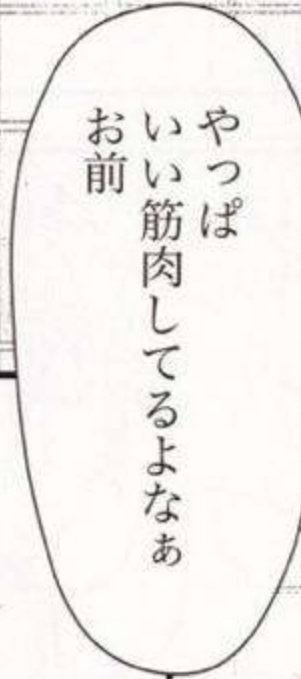 やっぱ
いい筋肉してるよなぁ
お前